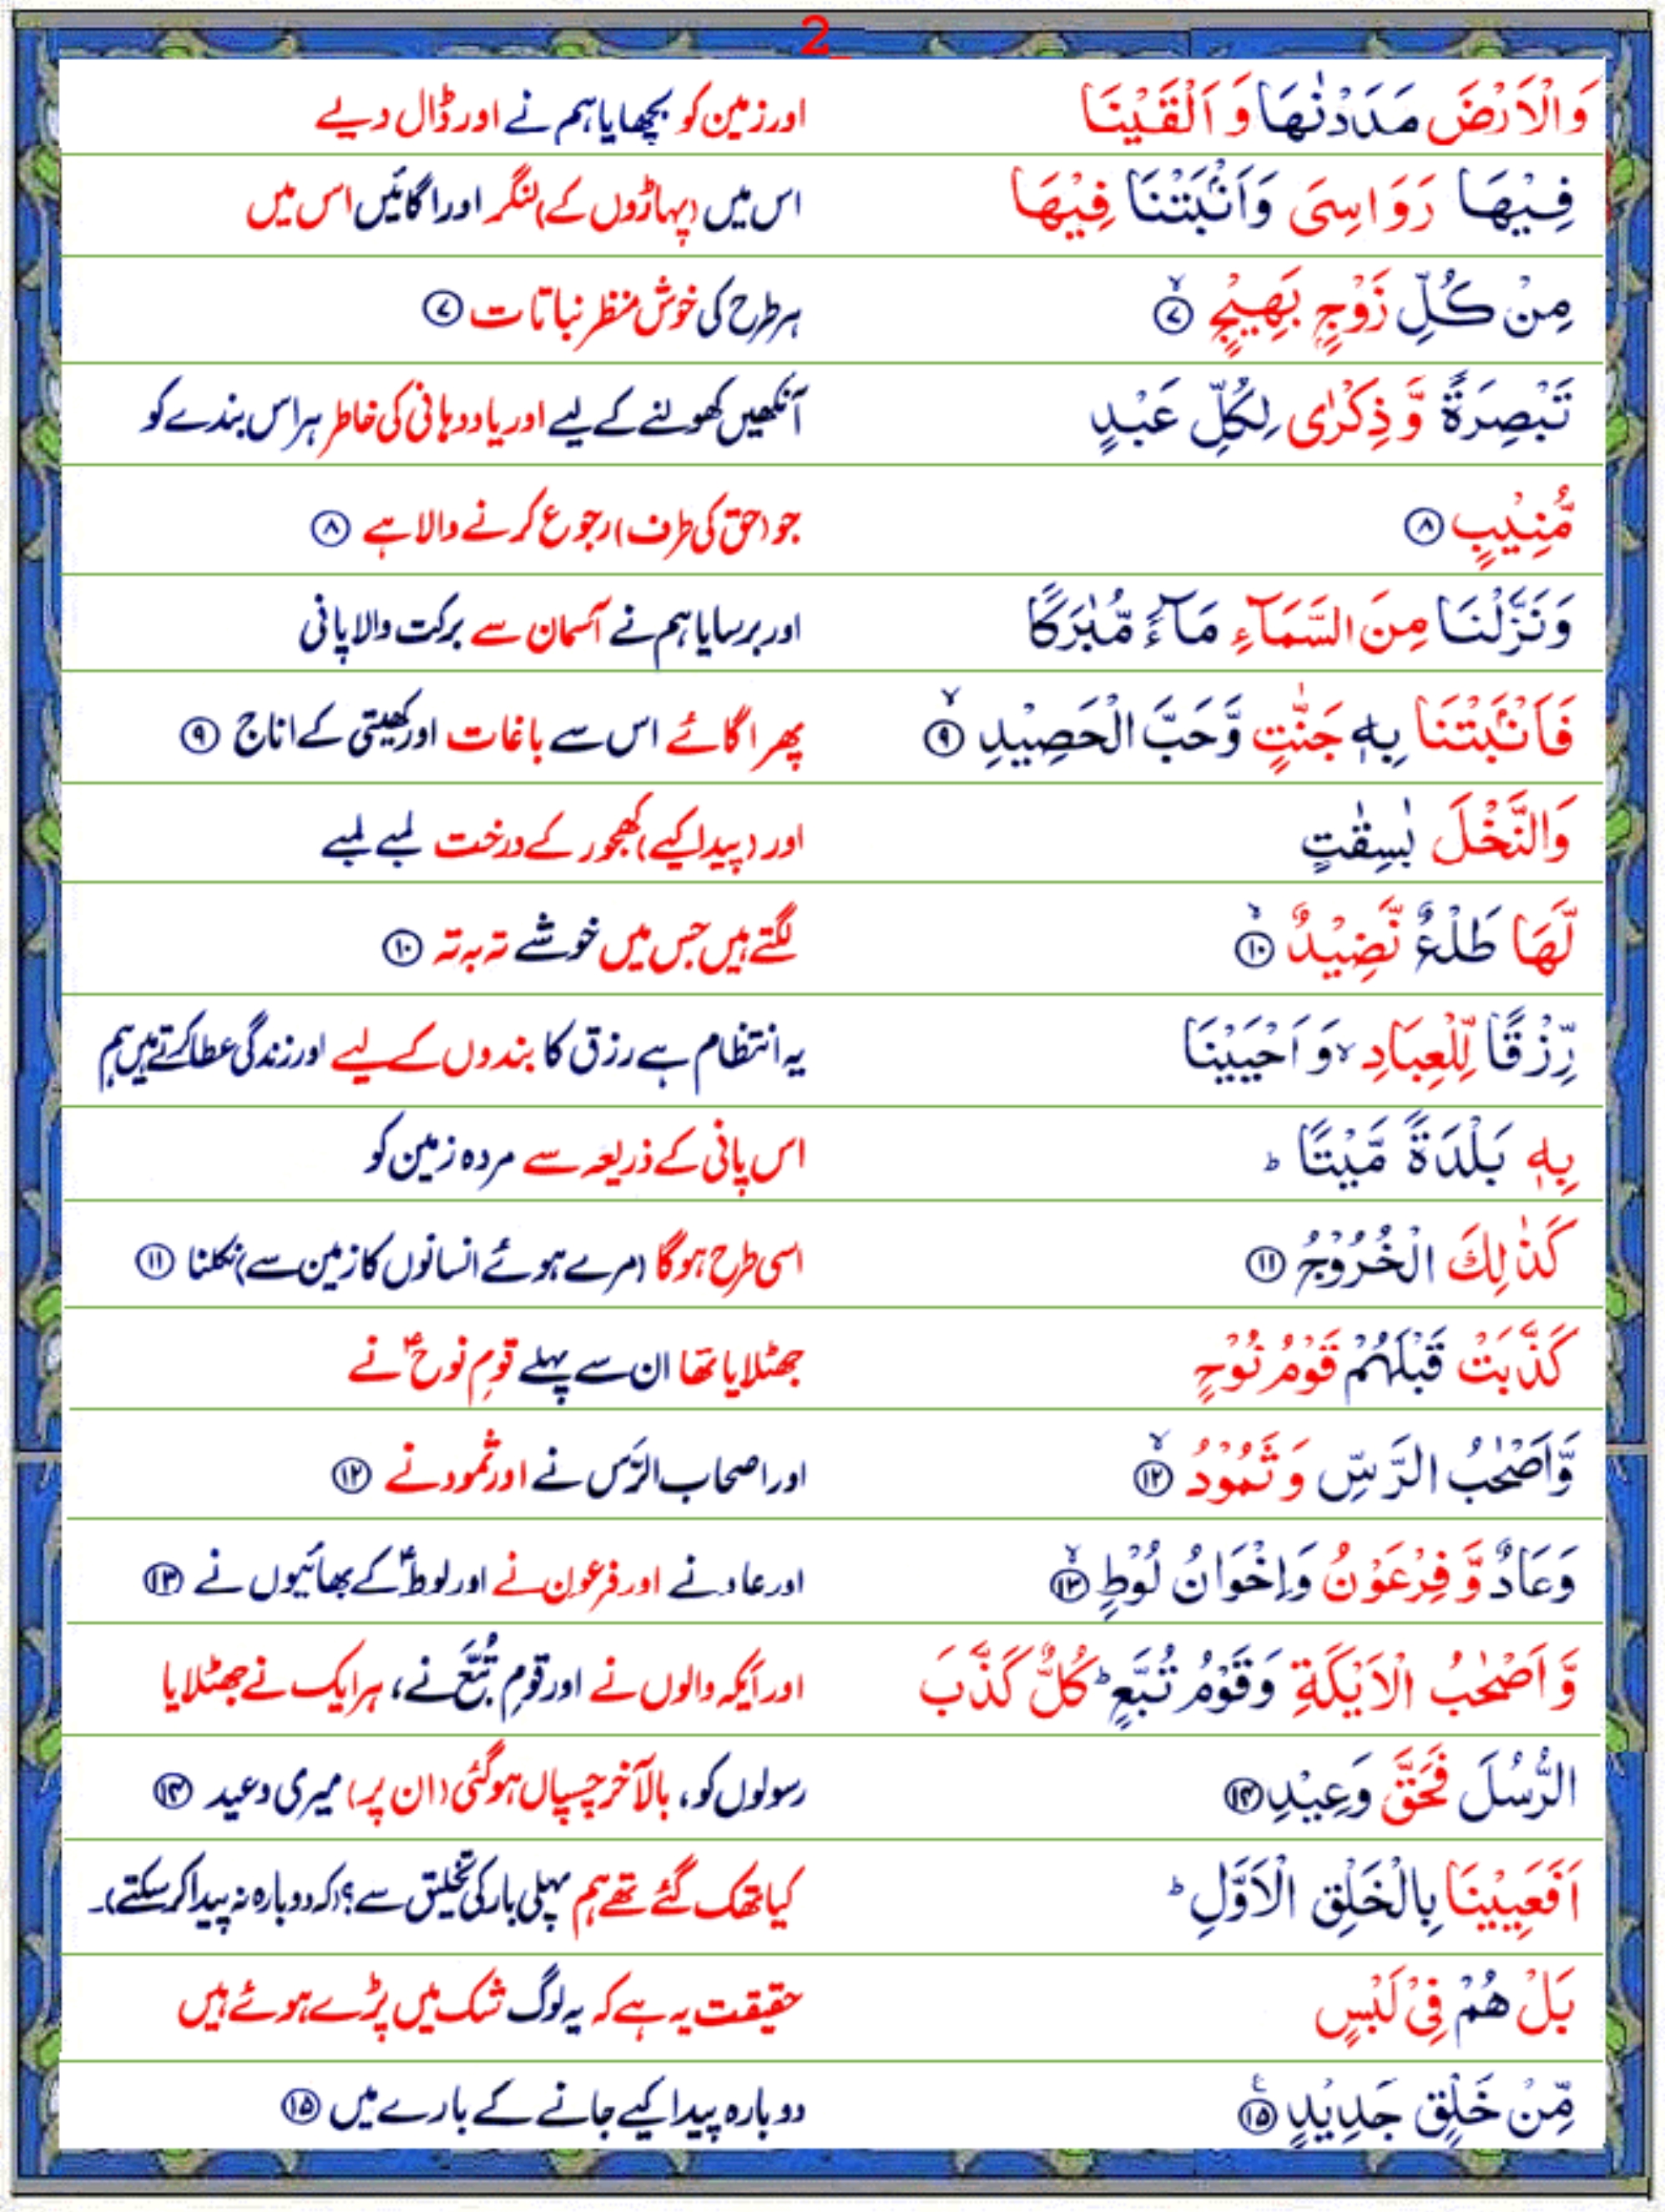 2
وَالْاَرْضَ مَدَدْنٰهَا وَ اَلْقَيْنَا اور زمین کو بچھایا ہم نے اور ڈال دیے
فِيْهَا رَوَاسِىَ وَاَنْۢبَتْنَا فِيْهَا اس میں (پہاڑوں کے) لنگر اور اگائیں اس میں
مِنْ كُلِّ زَوْجٍۭ بَهِيْجٍ ۙ﴿۷﴾ ہر طرح کی خوش منظر نباتات ﴿۷﴾
تَبْصِرَةً وَّ ذِكْرٰى لِكُلِّ عَبْدٍ آنکھیں کھولنے کے لیے اور یاددہانی کی خاطر ہر اس بندے کو
مُّنِيْبٍ ﴿۸﴾ جو (حق کی طرف) رجوع کرنے والا ہے ﴿۸﴾
وَنَزَّلْنَا مِنَ السَّمَآءِ مَآءً مُّبٰرَكًا اور برسایا ہم نے آسمان سے برکت والا پانی
فَاَنْۢبَتْنَا بِهٖ جَنّٰتٍ وَّحَبَّ الْحَصِيْدِ ۙ﴿۹﴾ پھر اگائے اس سے باغات اور کھیتی کے اناج ﴿۹﴾
وَالنَّخْلَ بٰسِقٰتٍ اور (پیدا کیے) کھجور کے درخت لمبے لمبے
لَّهَا طَلْعٌ نَّضِيْدٌ ۙ﴿۱۰﴾ لگتے ہیں جس میں خوشے تہ بہ تہ ﴿۱۰﴾
رِّزْقًا لِّلْعِبَادِ ۙ وَ اَحْيَيْنَا یہ انتظام ہے رزق کا بندوں کے لیے اور زندگی عطا کرتے ہیں ہم
بِهٖ بَلْدَةً مَّيْتًا ؕ اس پانی کے ذریعہ سے مردہ زمین کو
كَذٰلِكَ الْخُرُوْجُ ﴿۱۱﴾ اسی طرح ہوگا (مرے ہوئے انسانوں کا زمین سے) نکلنا ﴿۱۱﴾
كَذَّبَتْ قَبْلَهُمْ قَوْمُ نُوْحٍ جھٹلایا تھا ان سے پہلے قومِ نوحؑ نے
وَّاَصْحٰبُ الرَّسِّ وَ ثَمُوْدُ ۙ﴿۱۲﴾ اور اصحاب الرّس نے اور ثمود نے ﴿۱۲﴾
وَعَادٌ وَّ فِرْعَوْنُ وَاِخْوَانُ لُوْطٍ ۙ﴿۱۳﴾ اور عاد نے اور فرعون نے اور لوطؑ کے بھائیوں نے ﴿۱۳﴾
وَّ اَصْحٰبُ الْاَيْكَةِ وَقَوْمُ تُبَّعٍ ؕ كُلٌّ كَذَّبَ اور اَیکہ والوں نے اور قومِ تُبّع نے، ہر ایک نے جھٹلایا
الرُّسُلَ فَحَقَّ وَعِيْدِ ﴿۱۴﴾ رسولوں کو، بالآخر چسپاں ہوگئی (ان پر) میری وعید ﴿۱۴﴾
اَفَعَيِيْنَا بِالْخَلْقِ الْاَوَّلِ ؕ کیا تھک گئے تھے ہم پہلی بار کی تخلیق سے؟ (کہ دوبارہ نہ پیدا کرسکتے)۔
بَلْ هُمْ فِىْ لَبْسٍ حقیقت یہ ہے کہ یہ لوگ شک میں پڑے ہوئے ہیں
مِّنْ خَلْقٍ جَدِيْدٍ ۧ﴿۱۵﴾ دوبارہ پیدا کیے جانے کے بارے میں ﴿۱۵﴾